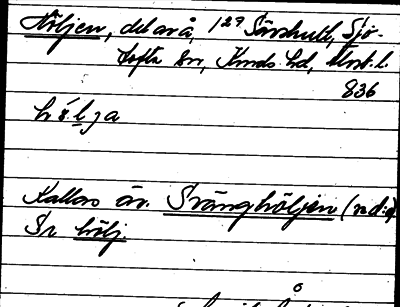 Höljen, del av å, 1²⁹ Särshult, Sjö-
tofta sn, Kinds hd, Älvsb. l.
836
hö́lja
Kallas äv. Svänghöljen (n d:o)
Se hölj.